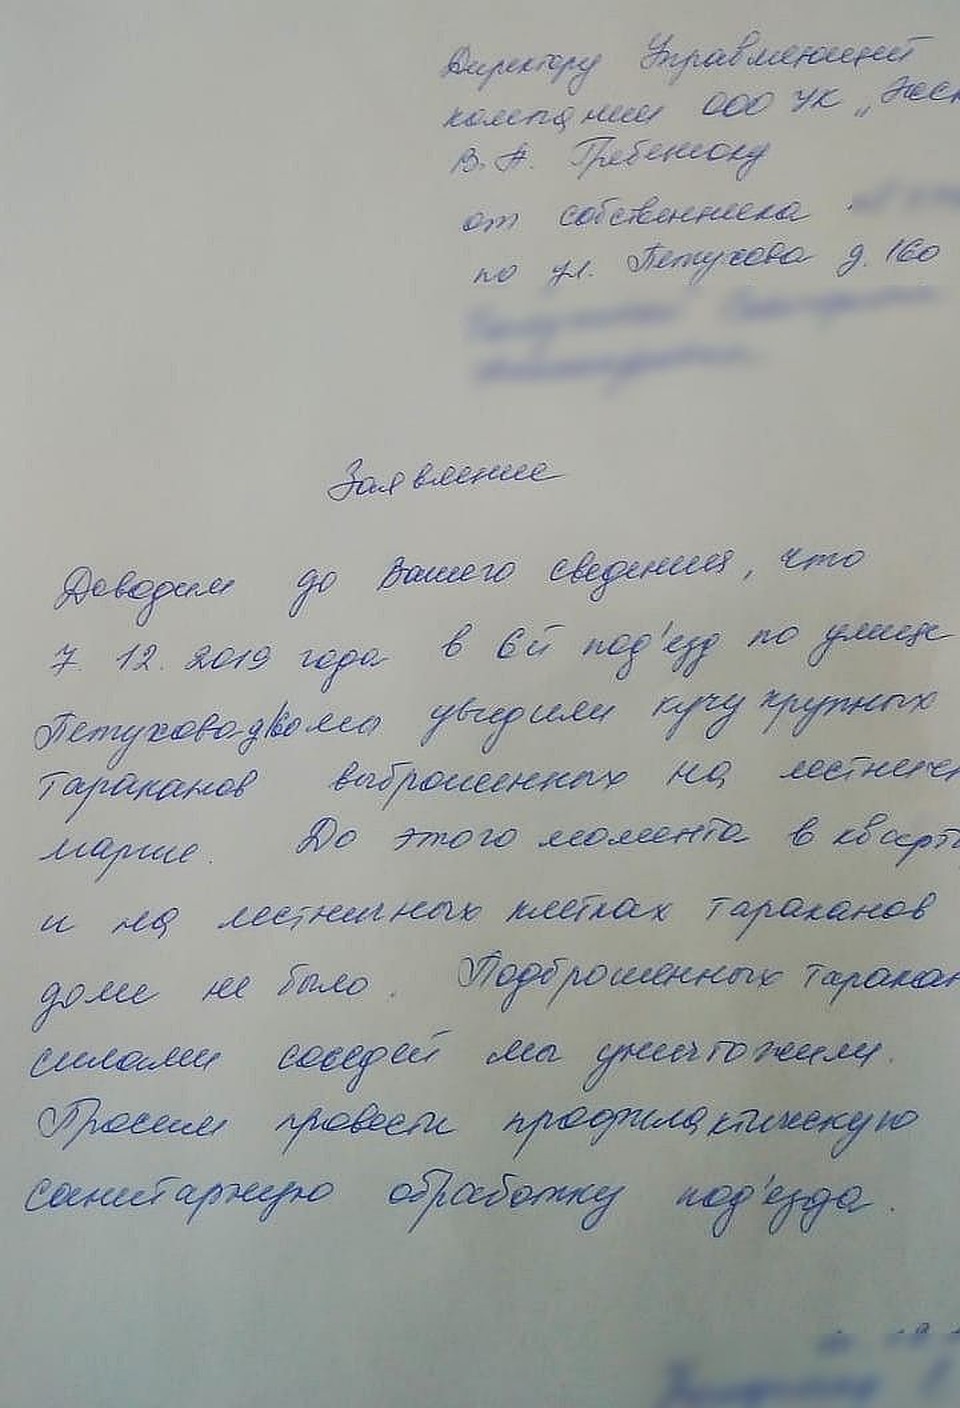 Директору Управляющий
компании ООО УК „
В. А. Гребенюку
от собственника
по ул. Петухова д. 160
Заявление
Доводим до Вашего сведения, что
7. 12. 2019 года в 6й под'езд по улице
Петухова д160 мы увидили кучу крупных
тараканов выброшенных на лестничн
марше. До этого момента в кварти
и на лестничных клетках тараканов
доме не было. Подброшенных таракан
силами соседей мы уничтожили.
Просим провести профилактическую
санитарную обработку под'езда.